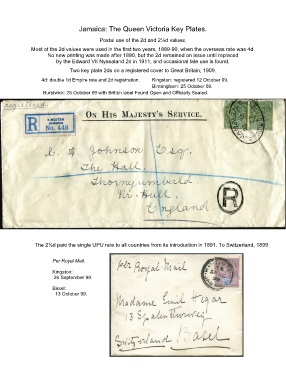 Jamaica: The Queen Victoria Key Plates.
Postal use of the 2d and 2½d values:
Most of the 2d values were used in the first two years, 1889-90, when the overseas rate was 4d.
No new printing was made after 1890, but the 2d remained on issue until replaced
by the Edward VII Nyasaland 2d in 1911, and occasional late use is found.
Two key plate 2ds on a registered cover to Great Britain, 1909.
4d: double 1d Empire rate and 2d registration. Kingston: registered 12 October 09.
Birmingham: 25 October 09.
Burstwick: 26 October 09 with British label Found Open and Officially Sealed.
registered
R
KINGSTON
JAMAICA
No. 446
ON HIS MAJESTY'S SERVICE.
Johnson Esq.
The Hall
Thorngumbald
Nr. Hull
England
R
The 2½d paid the single UPU rate to all countries from its introduction in 1891. To Switzerland, 1899
Per Royal Mail.
Kingston:
26 September 99.
Basel:
13 October 99.
per Royal Mail
Madame Emil
18
Switzerland Basel